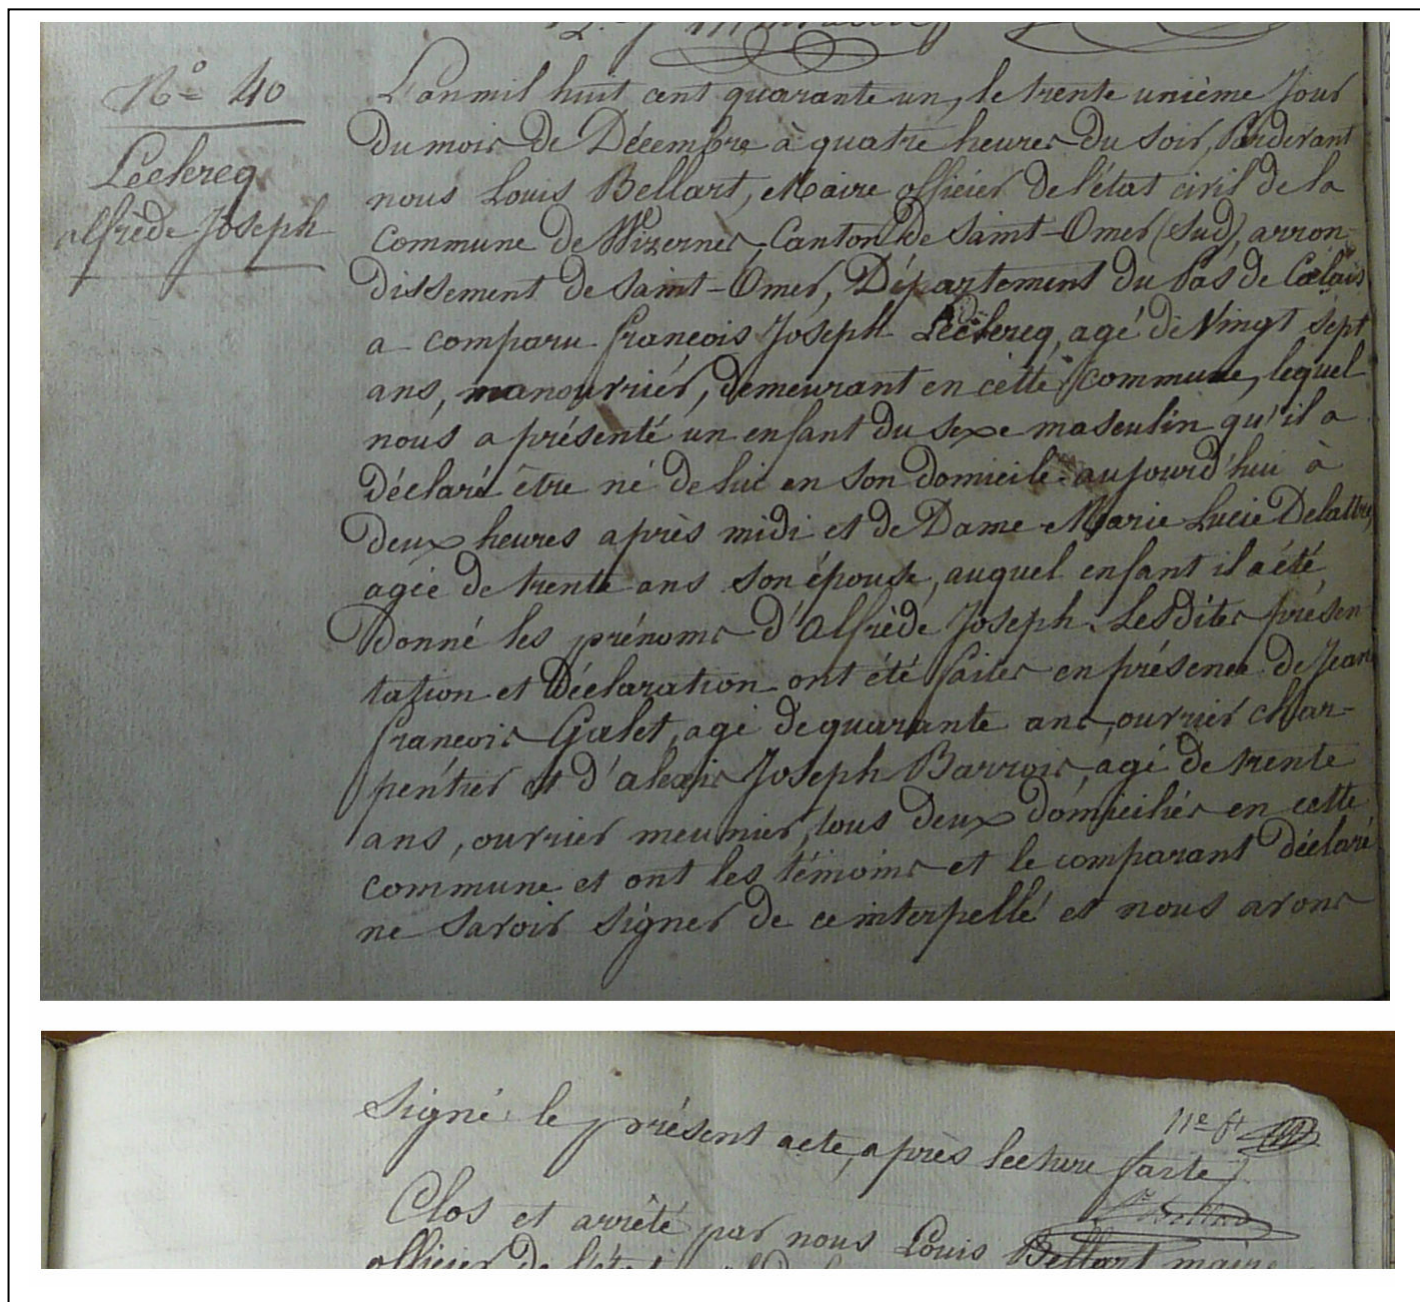 N° 40
Leclercq
alfrède Joseph
L'an mil huit cent quarante un, le trente unième Jour
Du mois de Décembre à quatre heures du soir, Pardevant
nous Louis Bellart, Maire officier de l'état civil de la
Commune de Wizernes, Canton de Saint-Omer (Sud), arron-
dissement de Saint-Omer, Département du Pas de Calais
a comparu françois Joseph Leclercq, agé de Vingt sept
ans, manouvrier, demeurant en cette commune, lequel
nous a présenté un enfant du sexe masculin qu'il a
Déclaré être né de lui en son domicile aujourd'hui à
Deux heures après midi et de Dame Marie Lucie Delattre,
agée de trente ans son épouse, auquel enfant il a été
Donné les prénoms d'Alfrède Joseph. Lesdites présen
tation et Déclaration ont été faites en présence de Jean
françois Galet, agé de quarante ans, ouvrier char-
pentier et d'alexis Joseph Barrois, agé de trente
ans, ouvrier meunier, tous deux domiciliés en cette
commune et ont les témoins et le comparant déclaré
ne savoir signer de ce interpellé et nous avons
signé le présent acte, après lecture faite
11e ft
Clos et arrêté par nous Louis Bellart maire
officier de l'état